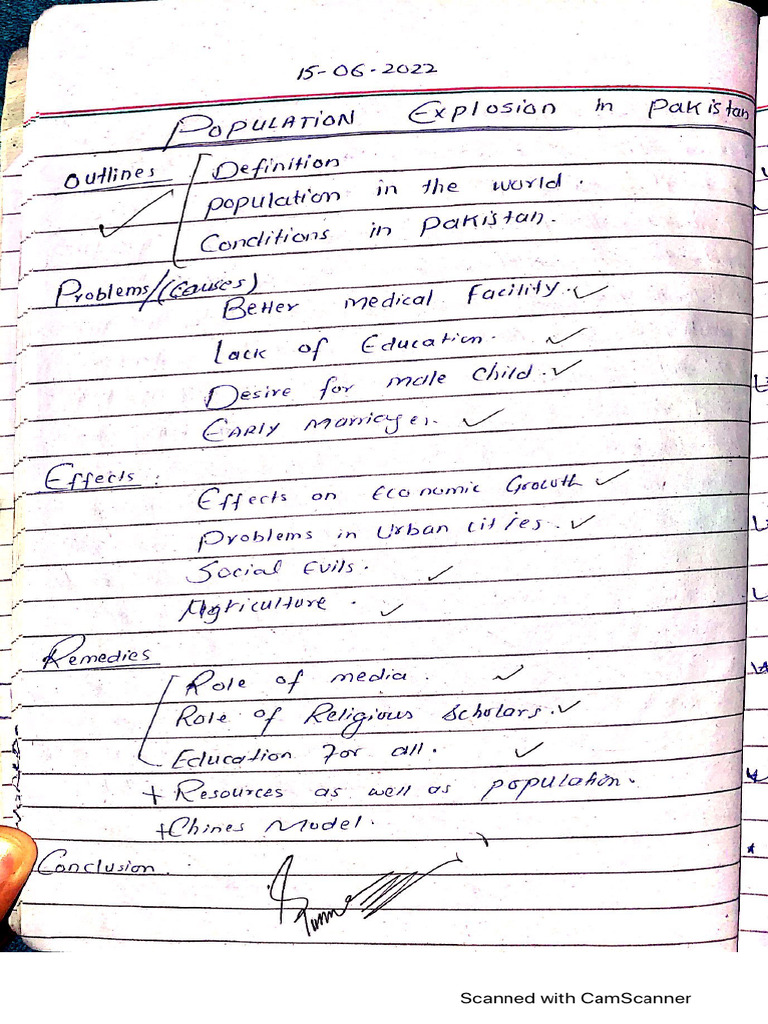 15-06-2022
POPULATION Explosion in Pakistan
Outlines Definition
population in the world.
Conditions in Pakistan.
Problems/(causes)
Better medical facility.
Lack of Education.
Desire for male child.
EARLY Marriages.
Effects:
Effects on Economic Growth
Problems in Urban cities.
Social Evils.
Agriculture.
Remedies
Role of media.
Role of Religious Scholars.
Education For all.
+ Resources as well as population.
+Chines Model.
Conclusion.
Scanned with CamScanner